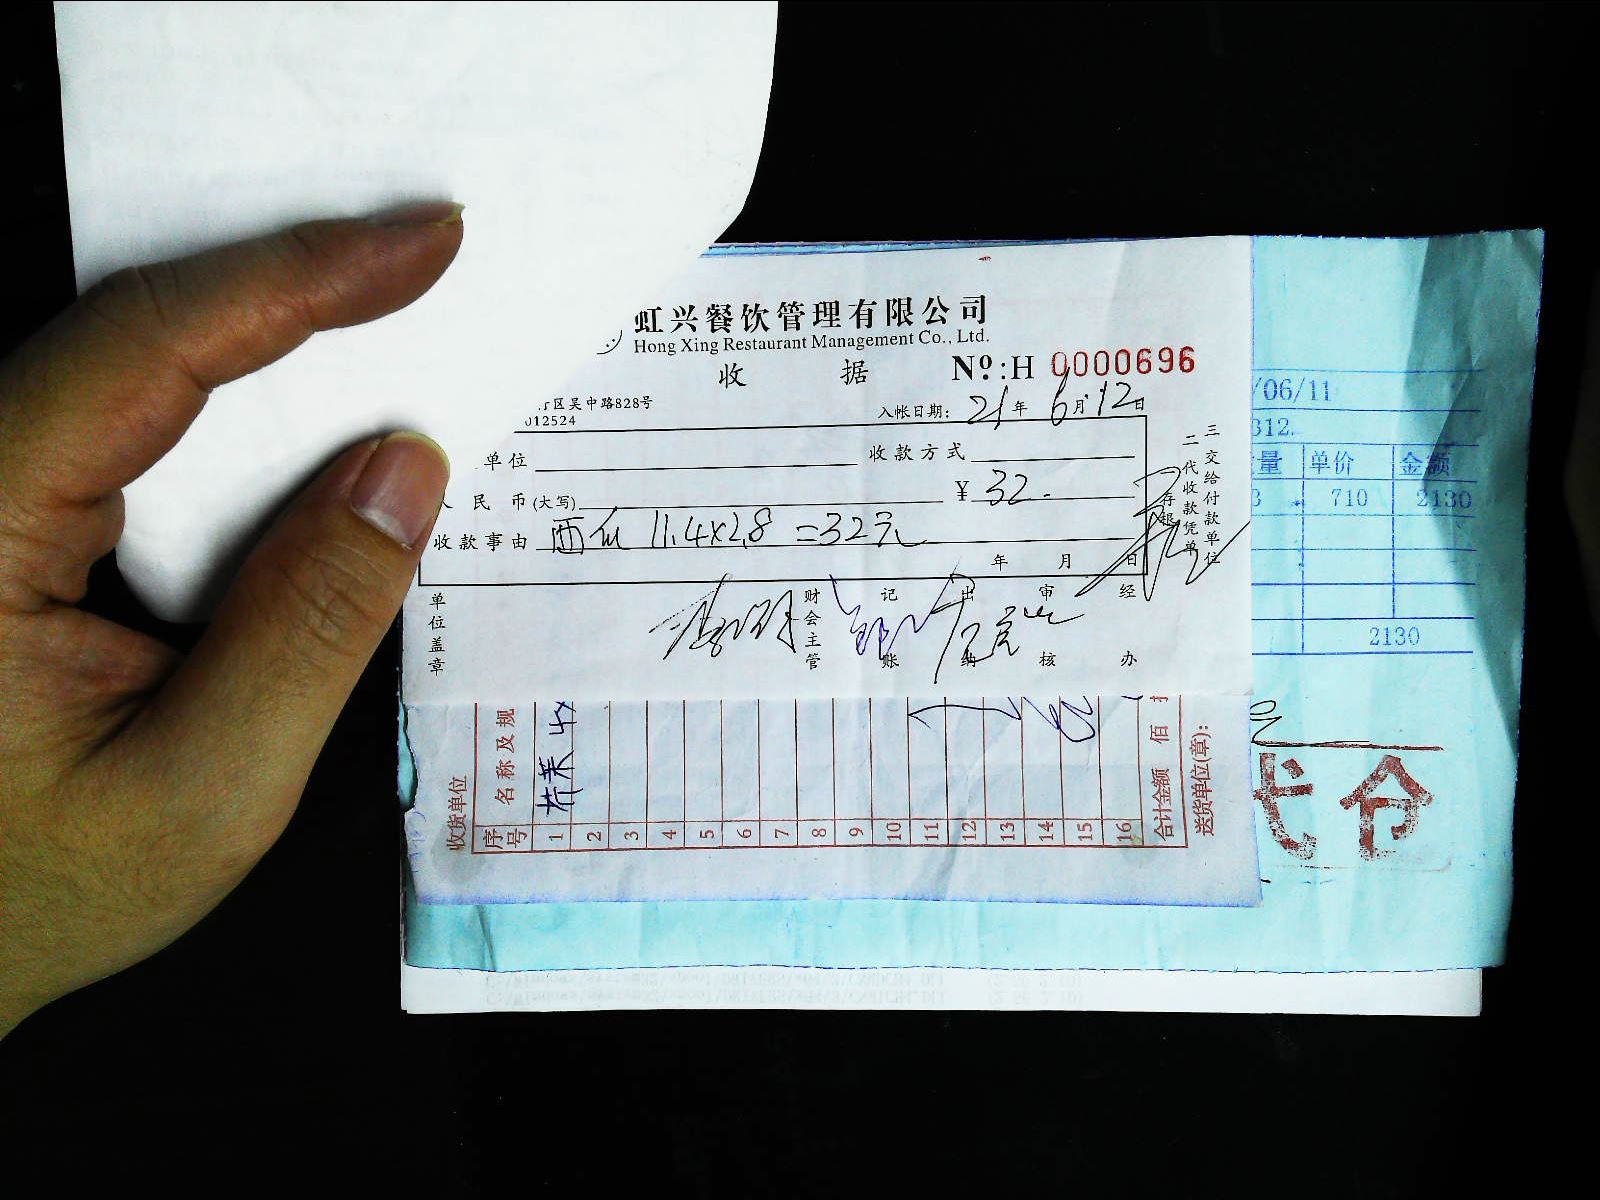 虹兴餐饮管理有限公司
Hong Xing Restaurant Management Co., Ltd.
收 据 Nº:H 0000696
区吴中路828号
012524
入帐日期: 21年 6月 12日
单位 收款方式
人民币(大写) ¥ 32.
收款事由 西瓜 11.4×2.8 =32元
年 月 日
二代收款凭单
三交给付款单位
存银
单位盖章 财会主管 记账 出纳 审核 经办
/06/11
312.
量 单价 金额
3 710 2130
2130
代仓
收货单位
序号 名称及规
1 荠菜 4x
2
3
4
5
6
7
8
9
10
11
12
13
14
15
16
合计金额 佰
送货单位(章):